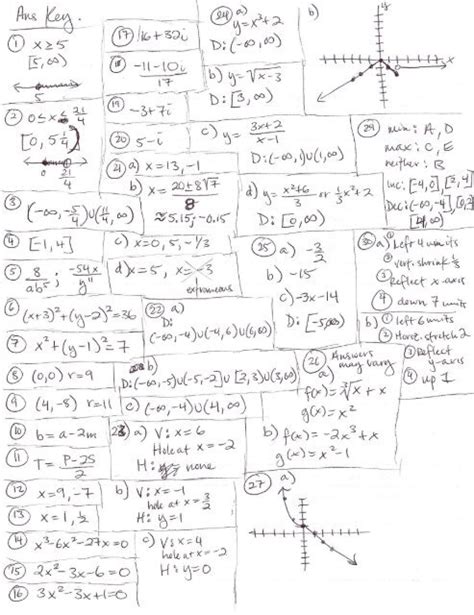 Ans Key.
① x ≥ 5
[5, ∞)
5
② 0 ≤ x ≤ 21/4
[0, 5 1/4
0 21/4
③ (-∞, -5/4) ∪ (11/4, ∞)
④ [-1, 4]
⑤ 8/ab⁵ ; -54x/y¹¹
⑥ (x+3)² + (y-2)² = 36
⑦ x² + (y-1)² = 7
⑧ (0,0) r = 9
⑨ (4,-8) r = 11
⑩ b = a - 2m
⑪ T = P-2S/2
⑫ x = 9, -7
⑬ x = 1, 1/2
⑭ x³ - 6x² - 27x = 0
⑮ 2x² - 3x - 6 = 0
⑯ 3x² - 3x + 1 = 0
⑰ 16 + 32i
⑱ -11-10i/17
⑲ -3 + 7i
⑳ 5 - i
㉑ a) x = 13, -1
b) x = 20±8√7/8
≈ 5.15; -0.15
c) x = 0, 5, -1/3
d) x = 5, x = -3
extraneous
㉒ a)
D:
(-∞, -4) ∪ (-4, 6) ∪ (6, ∞)
b)
D: (-∞, -5) ∪ (-5, -2] ∪ [2, 3) ∪ (3, ∞)
c) (-∞, -4) ∪ (4, ∞)
23 a) V: x = 6
Hole at x = -2
H: none
b) V: x = -1
hole at x = 3/2
H: y = 1
c) V: x = 4
hole at x = -2
H: y = 0
㉔ a)
y = x² + 2
D: (-∞, ∞)
b) y = √x-3
D: [3, ∞)
c) y = 3x+2/x-1
D: (-∞, 1) ∪ (1, ∞)
d) y = x²+6/3 or 1/3x² + 2
D: [0, ∞)
㉕ a) -3/2
b) -15
c) -3x - 14
D: [-5, ∞)
㉖ Answers
may vary
a)
f(x) = ∛x + x
g(x) = x²
b) f(x) = -2x³ + x
g(x) = x² - 1
㉗ a)
b)
y
x
㉙ min: A, D
max: C, E
neither: B
inc: [-4, 0]
Dec:
㉚ a) ① Left 4 units
② vert. shrink 1/3
③ Reflect x-axis
④ down 7 units
b) ① left 6 units
② Horiz. stretch 2
③ Reflect
y-axis
④ up 1